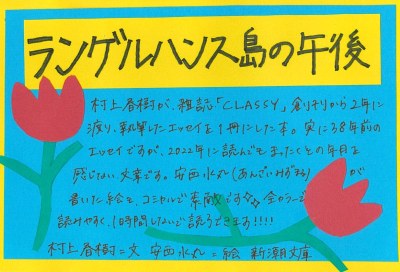 ランゲルハンス島の午後
村上春樹が、雑誌「CLASSY」創刊から2年に
渡り、執筆したエッセイを1冊にした本。実に38年前の
エッセイですが、2022年に読んでもまったくその年月を
感じない文章です。安西水丸(あんざいみずまる)が
書いた絵も、コミカルで素敵です☆☆全カラーで
読みやすく、1時間しないで読うできます!!!!
村上春樹=文 安西水丸=絵 新潮文庫